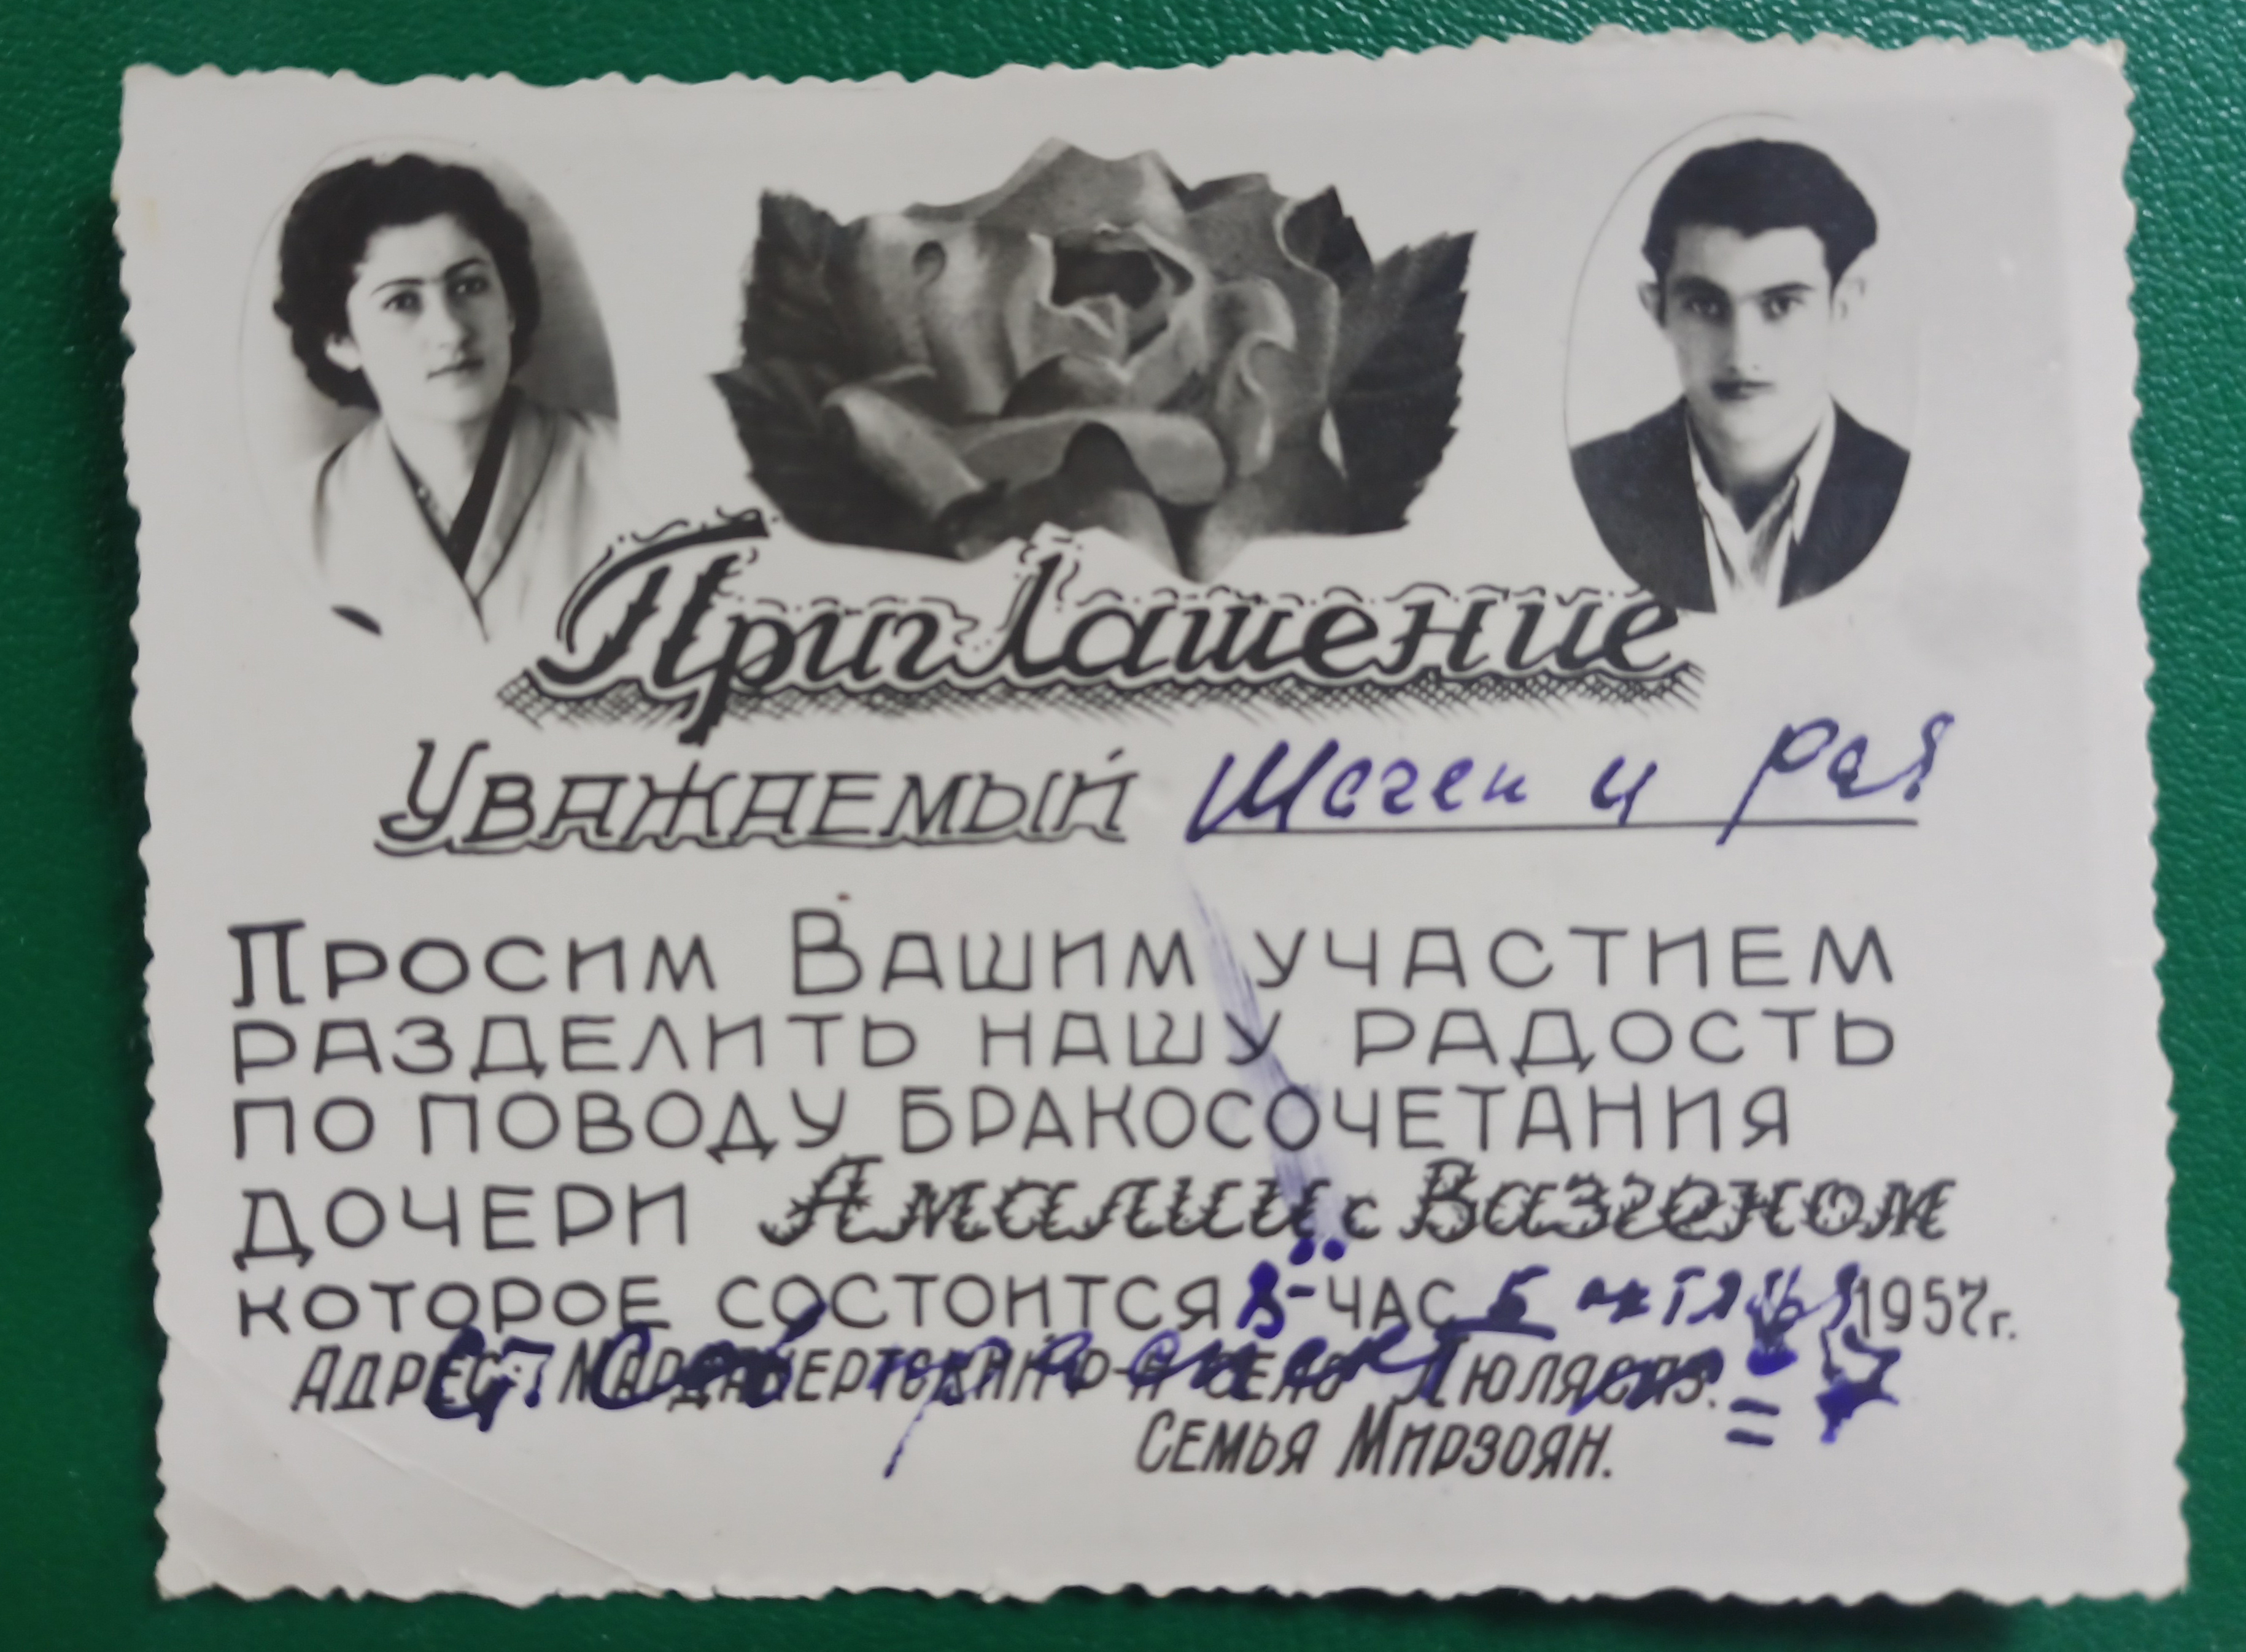 Приглашение
Уважаемый Шаген и Рая
Просим Вашим участием
разделить нашу радость
по поводу бракосочетания
дочери Амалии с Вазгеном
которое состоится 8 час 5 октября 1957 г.
Адрес: Мардакертский р-н село Люлясаз.
Семья Мирзоян.